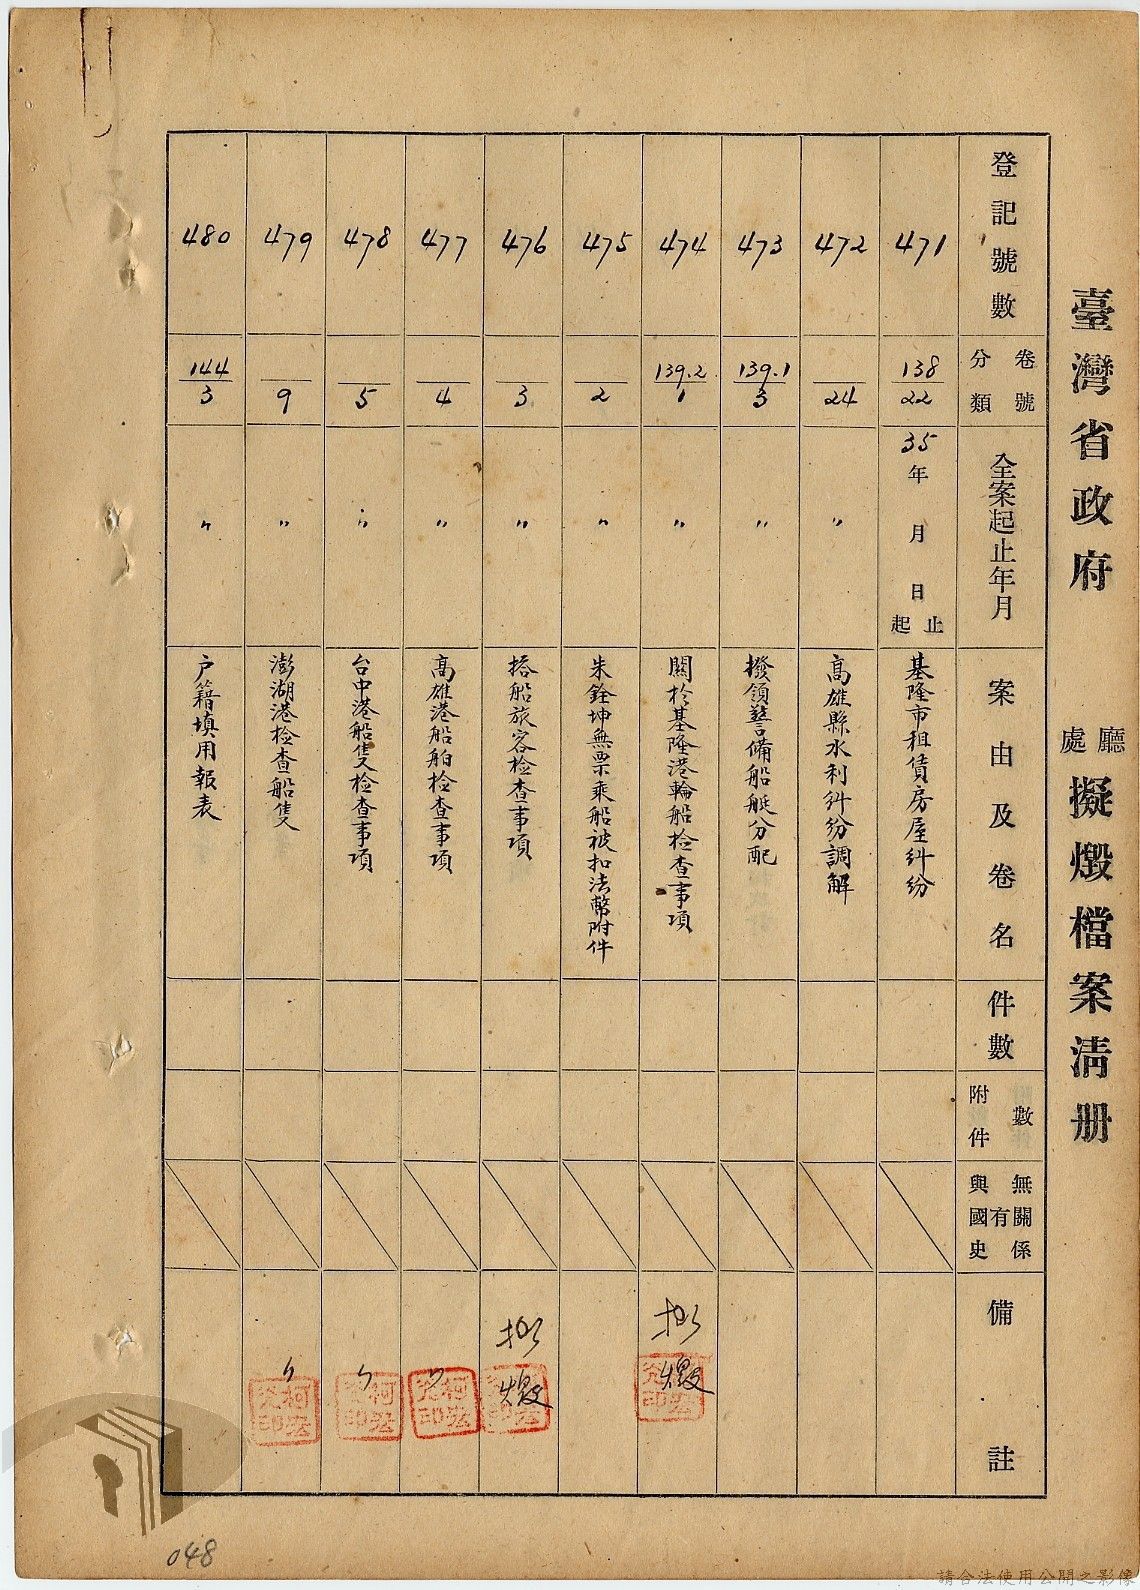 臺灣省政府 廳處 擬燬檔案清册
登記號數
卷號 分類
全案起止年月
案由及卷名
件數
附件數
與國史有無關係
備註
471
138/22
35年 月 日 起止
基隆市租賃房屋糾紛
472
24
〃
高雄縣水利糾紛調解
473
139.1/3
〃
撥領警備船艇分配
474
139.2/1
〃
關於基隆港輪船檢查事項
擬燬
475
2
〃
朱銓坤無票乘船被扣法幣附件
476
3
〃
搭船旅客檢查事項
擬燬
477
4
〃
高雄港船舶檢查事項
〃
478
5
〃
台中港船隻檢查事項
〃
479
9
〃
澎湖港檢查船隻
〃
480
144/3
〃
户籍填用報表
048
請合法使用公開之影像